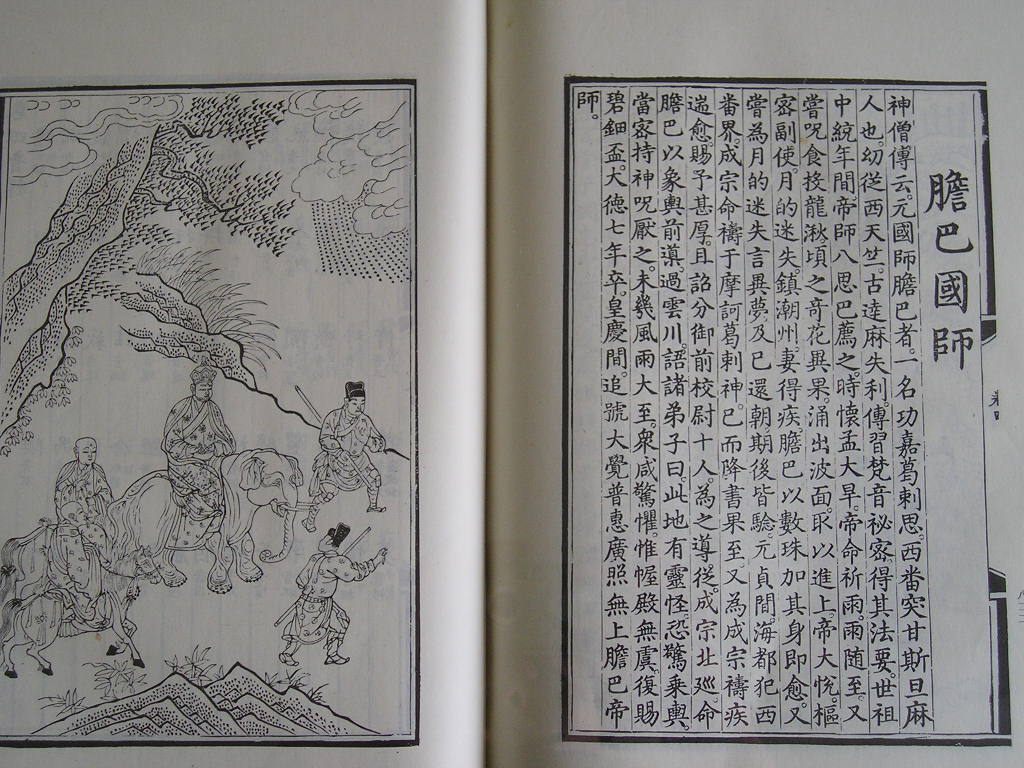 膽巴國師
神僧傳云。元國師膽巴者。一名功嘉葛剌思。西番突甘斯旦麻
人也。幼從西天竺。古達麻失利。傳習梵音祕密。得其法要。世祖
中統年間。帝師八思巴薦之。時懷孟大旱。帝命祈雨。雨随至。又
嘗呪食投龍湫。頃之奇花異果。涌出波面。取以進上。帝大悅。樞
密副使月的迷失。鎮潮州。妻得疾。膽巴以數珠加其身即愈。又
嘗為月的迷失言異夢及己還朝期後皆驗。元貞間。海都犯西
番界。成宗命禱于摩訶葛剌神。已而降書果至。又為成宗禱疾
遄愈。賜予甚厚。且詔分御前校尉十人。為之導從。成宗北廵。命
膽巴以象輿前導。過雲川。語諸弟子曰。此地有靈怪。恐驚乘輿。
當密持神呪厭之。未幾風雨大至。衆咸驚懼。惟幄殿無虞。復賜
碧鈿盃。大德七年卒。皇慶間。追號大覺普惠廣照無上膽巴帝
師。
卷四